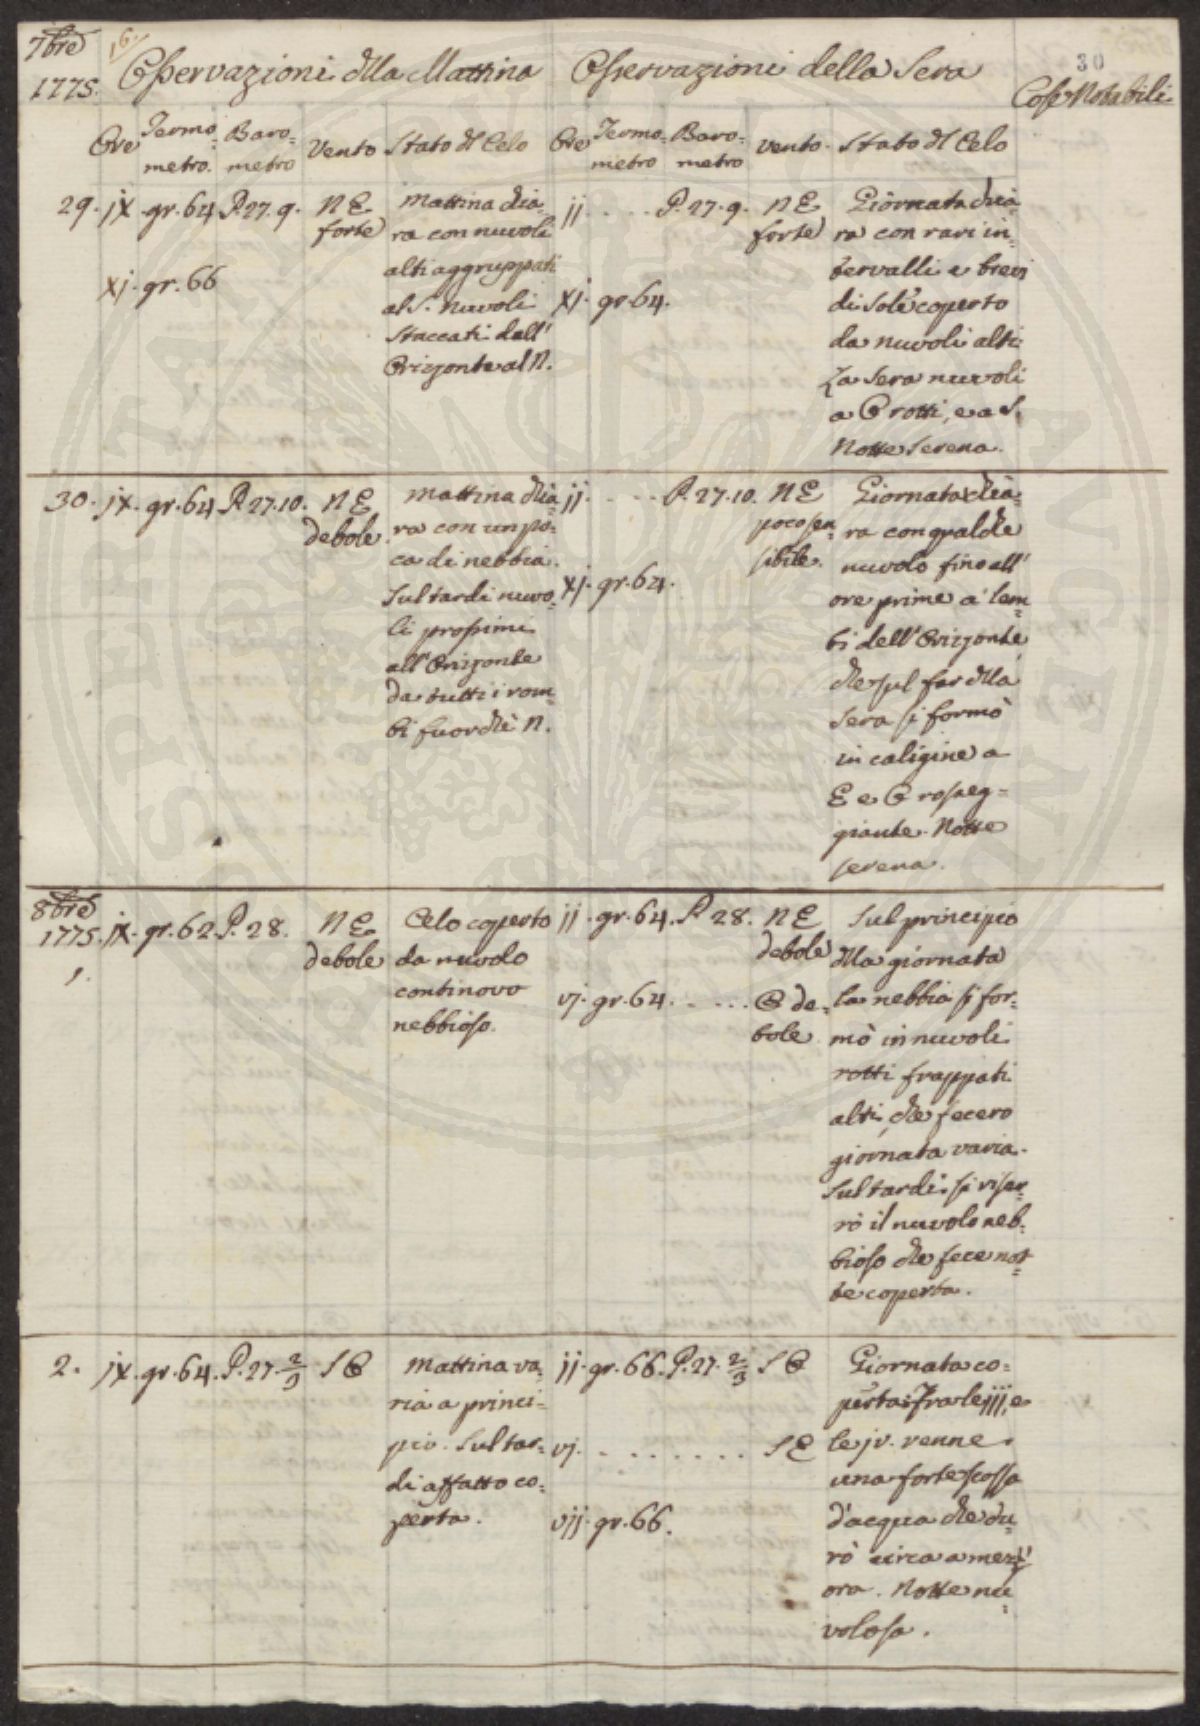 7bre
1775.
16.
Osservazioni dlla Mattina
Osservazioni della Sera
30
Cose Notabili.
Ore
Termo-
metro.
Baro-
metro
Vento
Stato dl Celo
Ore
Termo-
metro
Baro-
metro
Vento.
Stato dl Celo
29. jx. gr. 64 P. 27. 9. N E
forte
xj. gr. 66
Mattina chia-
ra con nuvoli
alti aggruppati
al S. Nuvoli
staccati dall'
Orizonte al N.
jj. . . . P. 27. 9. N E
forte
xj. gr. 64.
Giornata chia-
ra con rari in-
tervalli e brevi
di Sole coperto
da nuvoli alti
La Sera nuvoli
a O rotti, e a S.
Notte Serena.
30. jx. gr. 64 P. 27. 10. N E
debole
Mattina chia-
ra con un po-
ca di nebbia.
Sul tardi nuvo-
li prossimi
all'Orizonte
da tutti i rom-
bi fuorchè N.
jj. . . . P. 27. 10. N E
poco sen-
sibile.
xj. gr. 64.
Giornata chia-
ra con qualche
nuvolo fino all'
ore prime a' lem-
bi dell'Orizonte,
che sul far dlla
Sera si formò
in caligine a
E e O rosseg-
giante. Notte
serena.
8bre
1775.
1.
jx. gr. 62. P. 28. N E
debole
Celo coperto
da nuvolo
continovo
nebbioso.
jj. gr. 64. P. 28. N E
debole
vj. gr. 64. . . . . O de-
bole
Sul principio
dlla giornata
la nebbia si for-
mò in nuvoli
rotti frappati
alti, che fecero
giornata varia.
Sul tardi si riser-
rò il nuvolo neb-
bioso che fece not-
te coperta.
2. jx. gr. 64. P. 27. 2/3 S O
Mattina va-
ria a princi-
pio. Sul tar-
di affatto co-
perta.
jj. gr. 66. P. 27. 2/3 S O
vj. . . . . . . . S E
vjj. gr. 66.
Giornata co-
perta. Fra le jjj, e
le jv. venne
una forte scossa
d'acqua che du-
rò circa a mezz'
ora. Notte nu-
volosa.